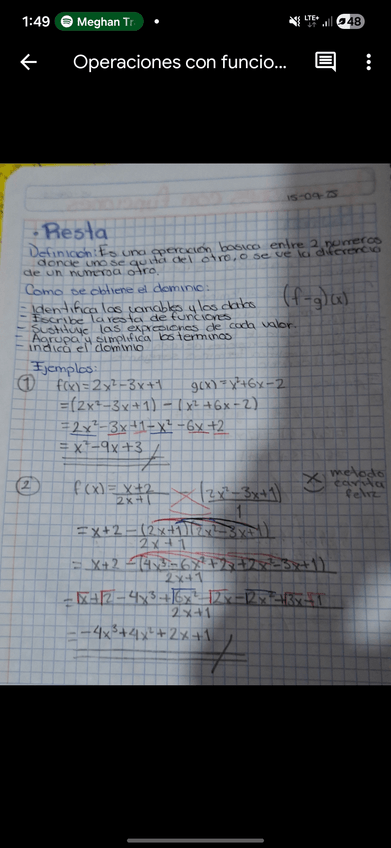 1:49 Meghan T LTE+ 48
Operaciones con funcio...
15-09-25
• Resta
Definición: Es una operación basica entre 2 numeros
donde uno se quita del otro, o se ve la diferencia
de un numero a otro.
Como se obtiene el dominio:
- Identifica las variables y los datos
- Escribe la resta de funciones
- Sustituye las expresiones de cada valor.
- Agrupa y simplifica los terminos
- indica el dominio
(f-g)(x)
Ejemplos:
① f(x)=2x²-3x+1 g(x)=x²+6x-2
=(2x²-3x+1) - (x²+6x-2)
= 2x²-3x+1-x²-6x+2
= x²-9x+3
② f(x)= x+2 / 2x+1 (2x²-3x+1) / 1
metodo
carita
feliz
= x+2 -(2x+1)(2x²-3x+1) / 2x+1
= x+2 -(4x³-6x²+2x+2x²-3x+1) / 2x+1
= x+2-4x³+6x²-2x-2x²+3x+1 / 2x+1
= -4x³+4x²+2x+1